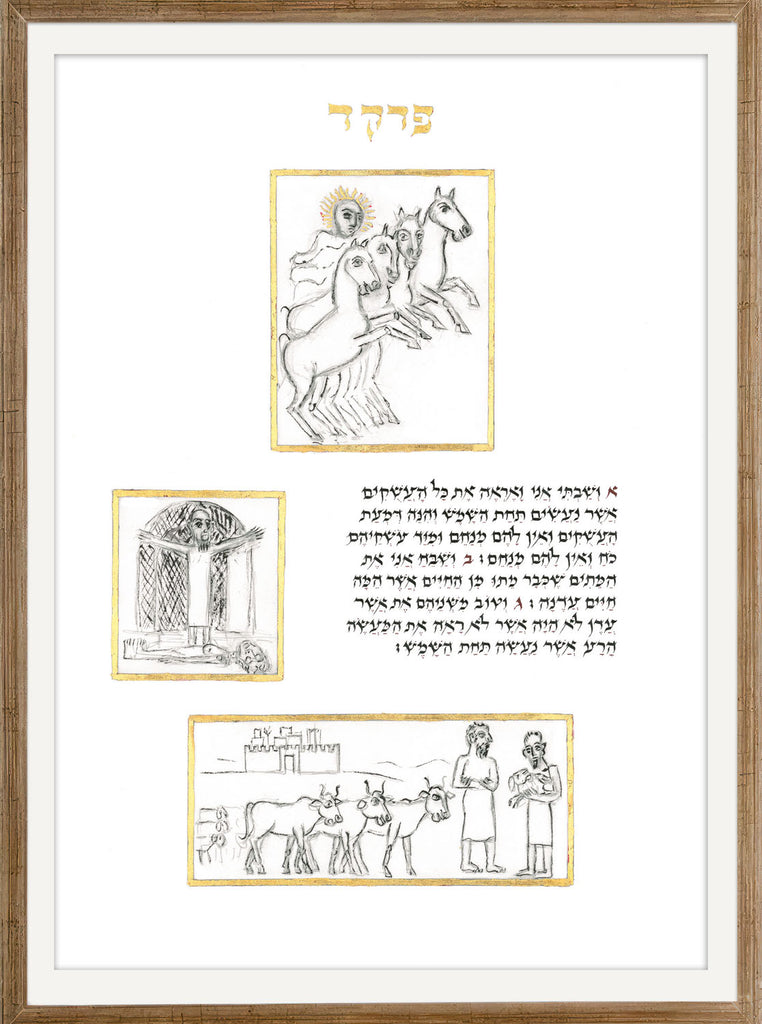 פרק ד
א וְשַׁבְתִּי אֲנִי וָאֶרְאֶה אֶת כָּל הָעֲשֻׁקִים
אֲשֶׁר נַעֲשִׂים תַּחַת הַשָּׁמֶשׁ וְהִנֵּה דִּמְעַת
הָעֲשֻׁקִים וְאֵין לָהֶם מְנַחֵם וּמִיַּד עֹשְׁקֵיהֶם
כֹּחַ וְאֵין לָהֶם מְנַחֵם׃ ב וְשַׁבֵּחַ אֲנִי אֶת
הַמֵּתִים שֶׁכְּבָר מֵתוּ מִן הַחַיִּים אֲשֶׁר הֵמָּה
חַיִּים עֲדֶנָה׃ ג וְטוֹב מִשְּׁנֵיהֶם אֵת אֲשֶׁר
עֲדֶן לֹא הָיָה אֲשֶׁר לֹא רָאָה אֶת הַמַּעֲשֶׂה
הָרָע אֲשֶׁר נַעֲשָׂה תַּחַת הַשָּׁמֶשׁ׃